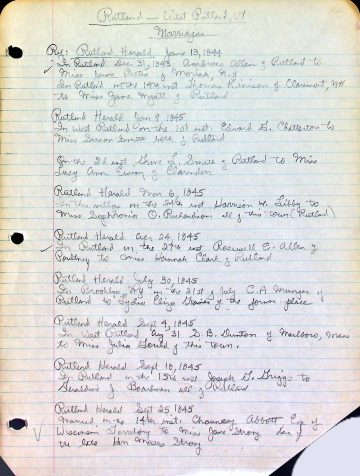 Rutland — West Rutland, Vt
Marriages
Ref: Rutland Herald Jan 13, 1844
In Rutland Dec 31, 1843 Ambrose Allen of Rutland to
Miss Jane Potts of Moriah, N.Y.
In Rutland on the 14th inst Thomas Kinison of Claremont, NH
to Miss Jane Myatt of Rutland
Rutland Herald Jan 9 1845
In West Rutland on the 1st inst. Edward G. Chatterton to
Miss Susan both of Rutland
On the 2d inst L. Smith of Rutland to Miss
Lucy Ann of Clarendon
Rutland Herald Mar 6, 1845
In this village on the 24th inst Harrison W. Libby to
Miss Sophronia O. Richardson all of this town (Rutland)
Rutland Herald 24 1845
In Rutland on the 27th inst Roswell C. Allen of
Poultney to Miss Hannah Clark of Rutland
Rutland Herald July 30, 1845
In Brooklyn NY on the 21st of July C. A. Munger of
Rutland to Lydia Eliza of the former place
Rutland Herald Sept 4, 1845
In West Rutland Aug 31 D. B. Dunton of Marlboro, Mass
to Miss Julia Gould of this town.
Rutland Herald Sept 18, 1845
In Rutland on the 15th inst Joseph G. Griggs to
Geraldine J. Boardman all of Rutland
Rutland Herald Sept 25, 1845
Married on the 14th inst Chauncey Abbott Esq of
Wisconsin Territory to Miss Jane Strong dau of
the late Hon Moses Strong